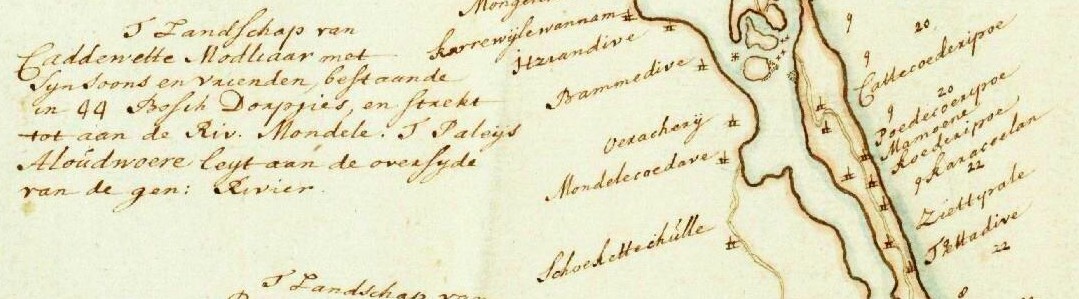 T Landschap van
Caddewette Modliaar met
Syn soons en vrienden, bestaande
in 44 Bosch Dorppies, en strekt
tot aan de Riv. Mondele. T Paleys
Aloudwoere leyt aan de oversyde
van de gen: Rivier.
T Landschap van
Karrewylewannam
Itzandive
Bammedive
Verachery
Mondelecoedave
Schoekettechülle
9
20
9
Cattecoederipoe
9
20
Poedecoeripoe
Mamoene
Koederipoe
9 Karacoelan
22
Ziettyvale
Tettadive
22